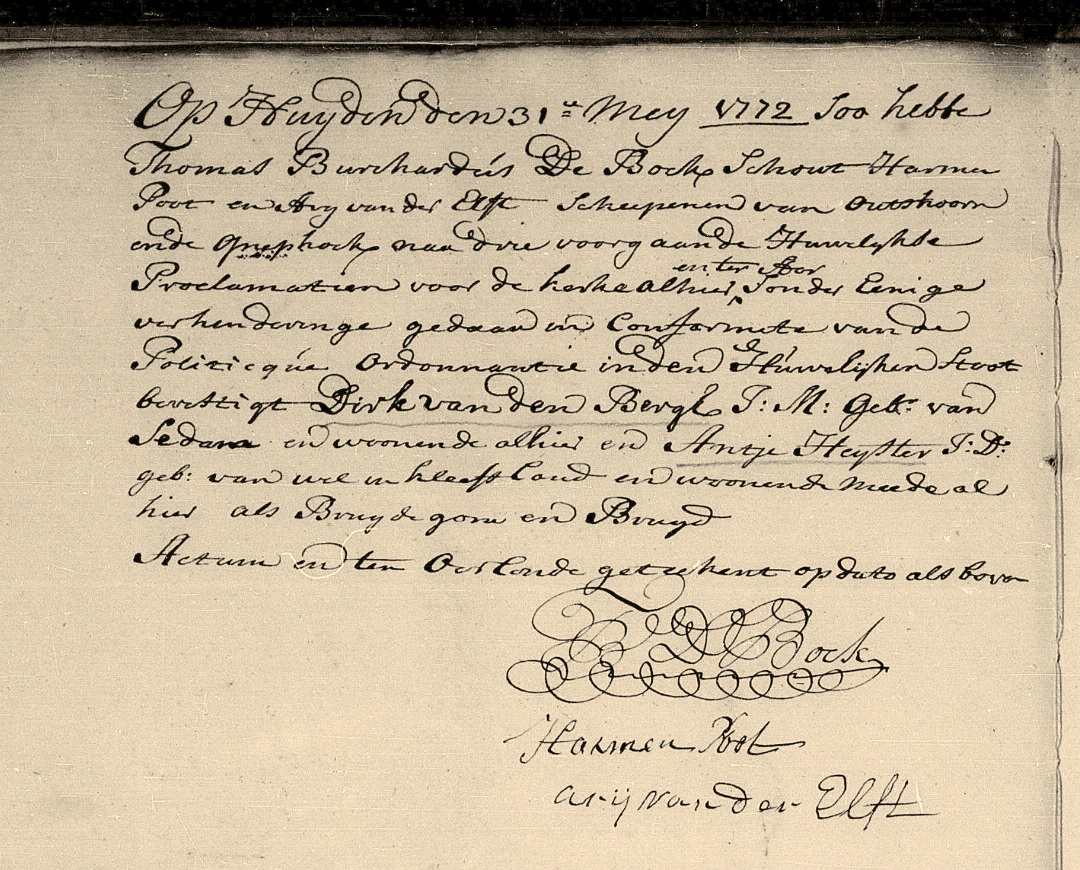 Op Huyden den 31e Mey 1772 Soo hebbe
Thomas Burchardus De Bock Schout Harmen
Poot en Ary van der Elft Scheepenen van Outshoorn
ende Gnephoek naa drie voorgaande Huwelykse
en ter Aar
Proclamatien voor de kerke alhier, Sonder Eenige
verhenderinge gedaan in Conformite van de
Politicque Ordonnantie in den Huwelijken Staat
bevestigt Dirk van den Bergh J: M: Geb: van
Sedam en woonende alhier en Antje Heyster J: D:
geb: van wel in kleefs land en woonende meede al
hier als Bruydegom en Bruyd
Actum en ten Oirconde geteekent op dato als boven
T B D Bock
Harmen Poot
arij van der Elft